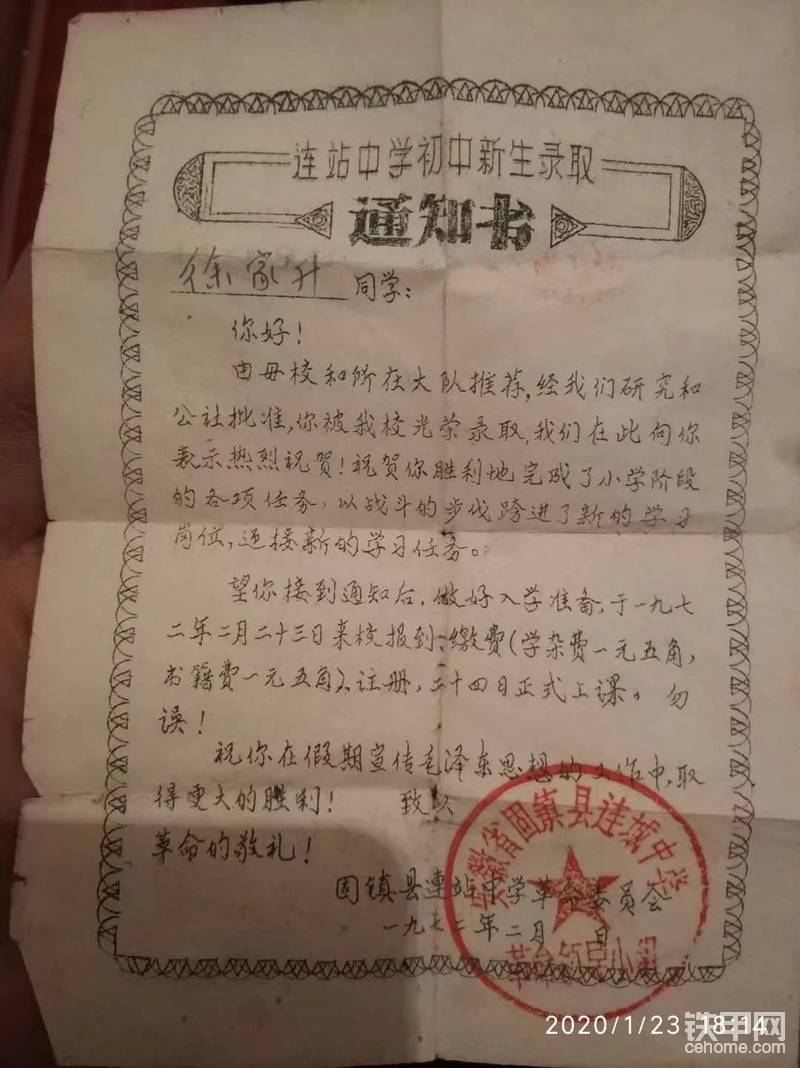 连站中学初中新生录取
通知书
徐家升 同学：
你好！
由母校和所在大队推荐，经我们研究和
公社批准，你被我校光荣录取，我们在此向你
表示热烈祝贺！祝贺你胜利地完成了小学阶段
的各项任务，以战斗的步伐跨进了新的学习
岗位，迎接新的学习任务。
望你接到通知后，做好入学准备，于一九七
二年二月二十三日来校报到、缴费（学杂费一元五角，
书籍费一元五角）、注册，二十四日正式上课。勿
误！
祝你在假期宣传毛泽东思想的工作中，取
得更大的胜利！ 致以
革命的敬礼！
固镇县連站中学革命委员会
一九七二年二月 日
安徽省固镇县连城中学
革命领导小组
2020/1/23 18:14
铁甲网
cehome.com